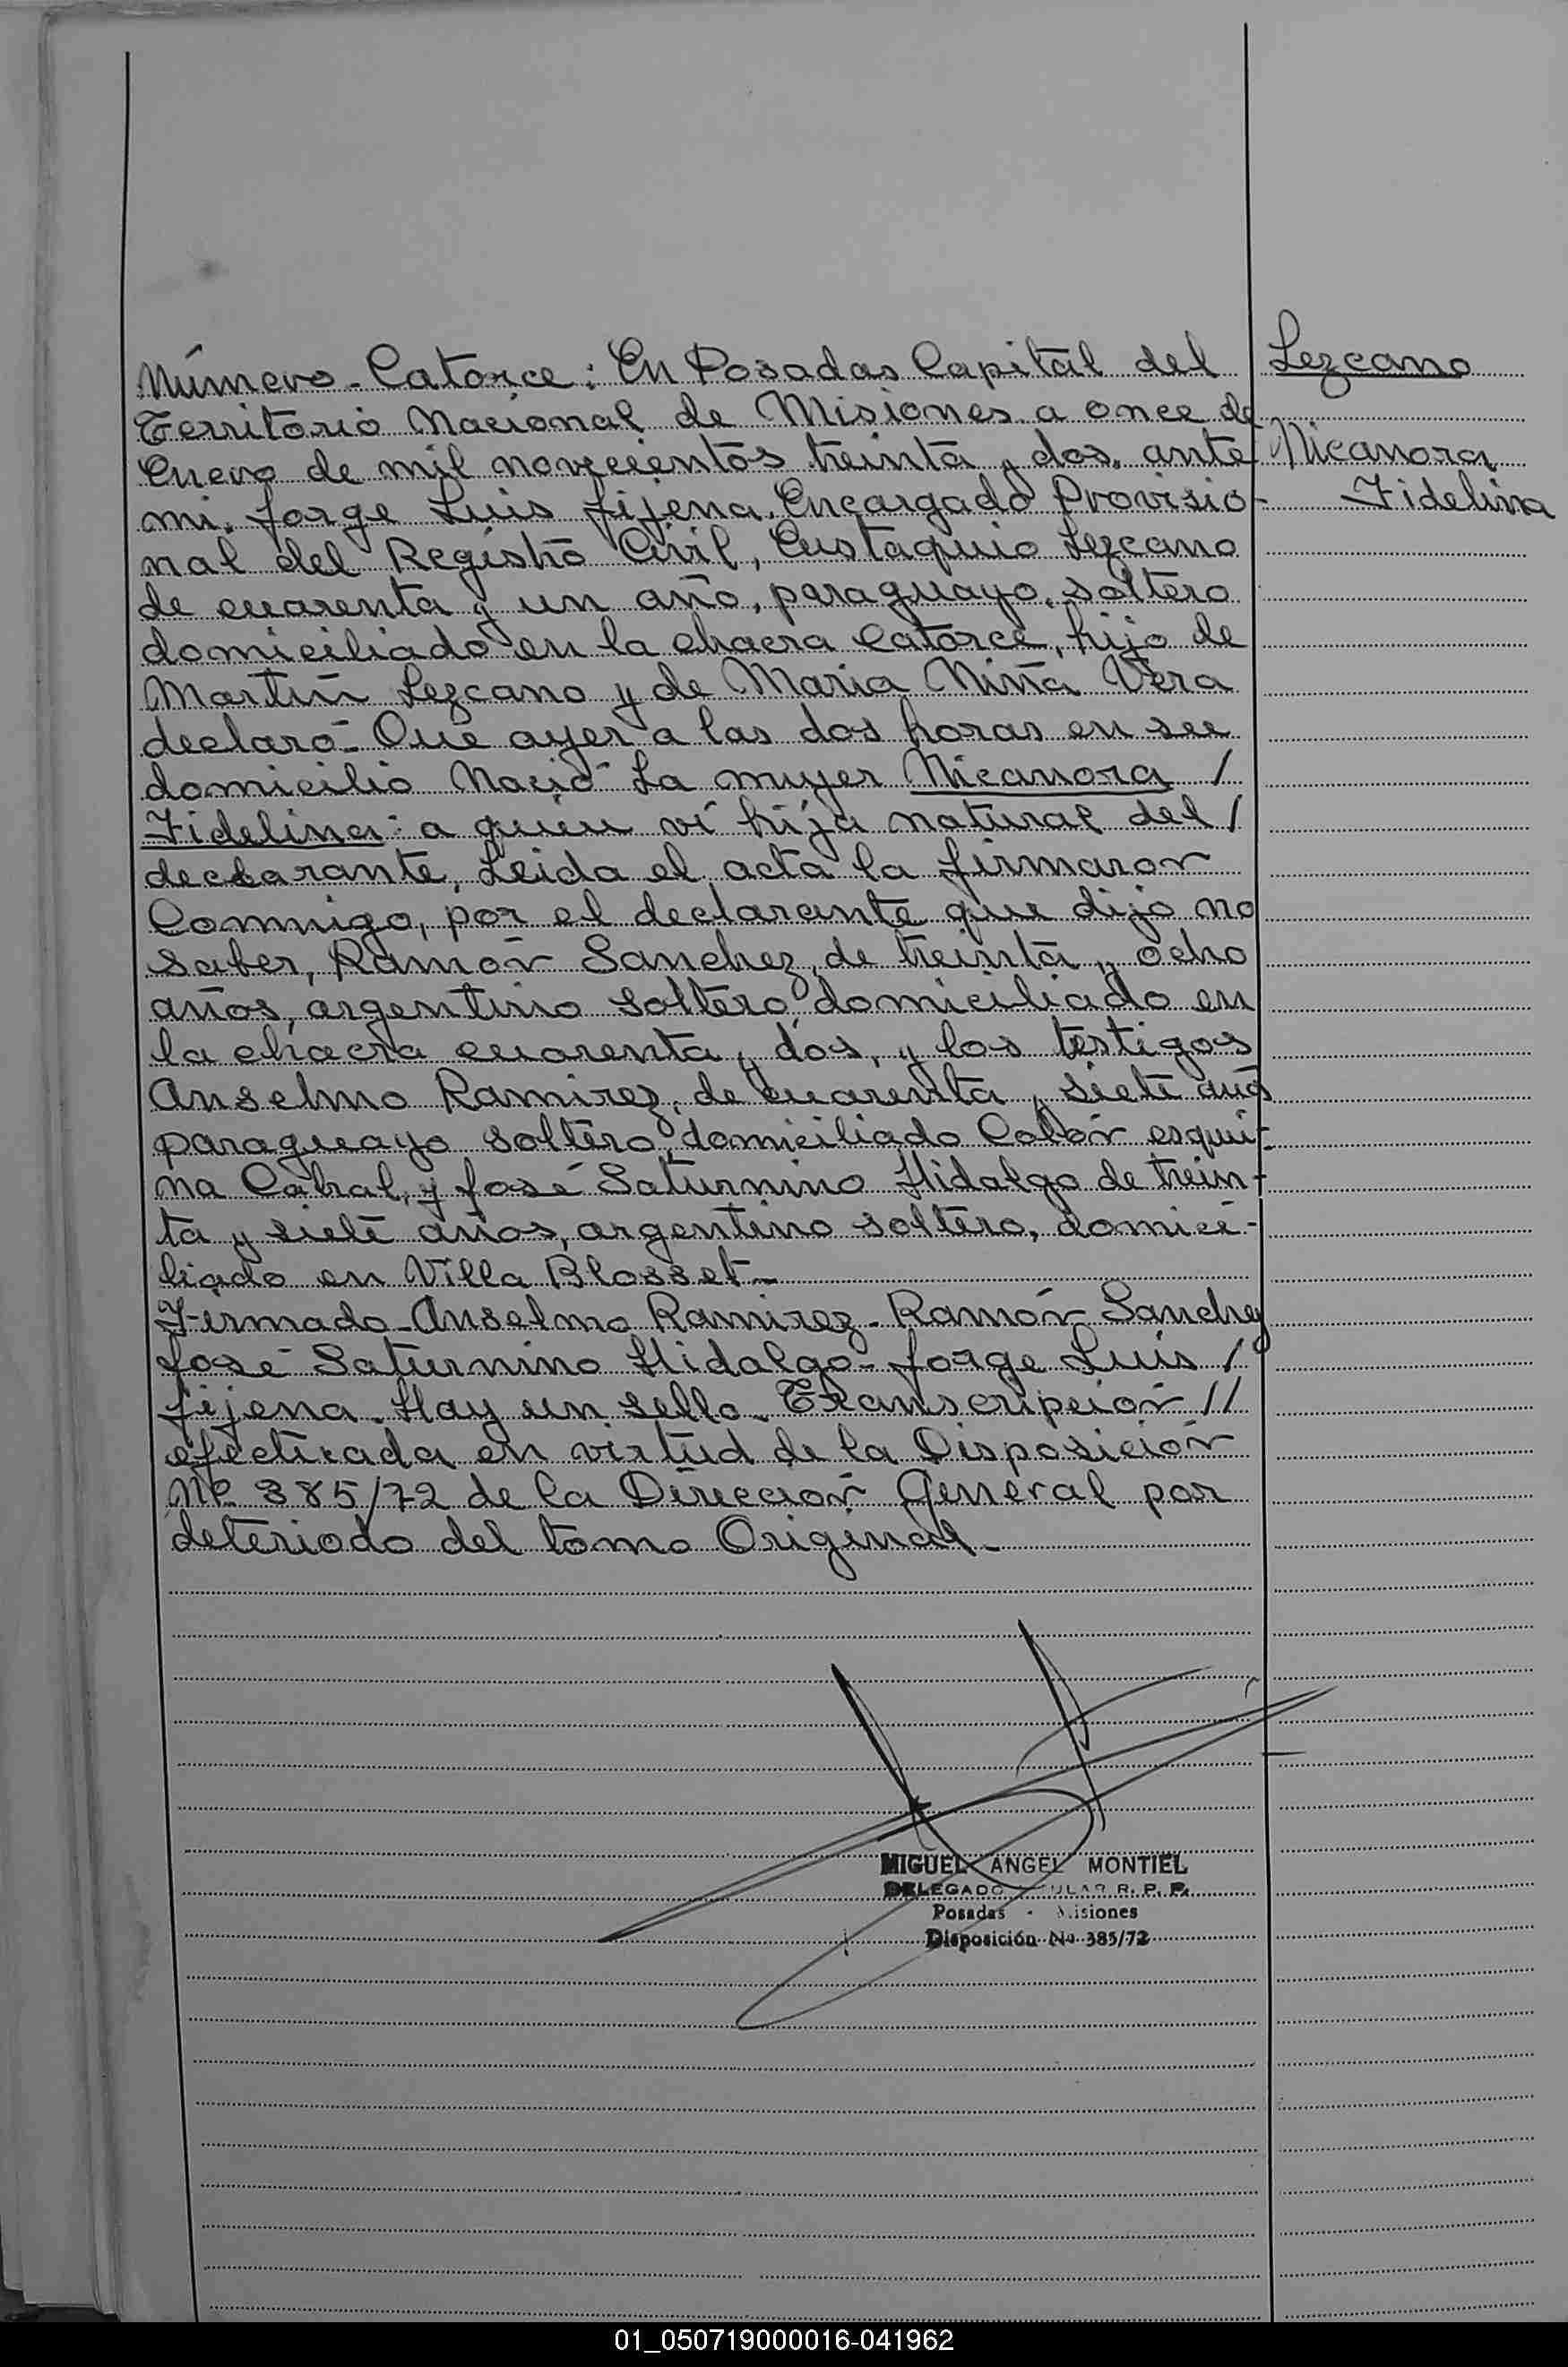 Número - Catorce: En Posadas Capital del
Lezcano
Territorio Nacional de Misiones a once de
Enero de mil novecientos treinta y dos, ante
Nicanora
mi, Jorge Luis Jijena, Encargado Provisio-
Fidelina
nal del Registro Civil, Eustaquio Lezcano
de cuarenta y un año, paraguayo, soltero
domiciliado en la chacra catorce, hijo de
Martin Lezcano y de Maria Niña Vera
declaró - Que ayer a las dos horas en su
domicilio Nació La mujer Nicanora /
Fidelina: a quien ví hija natural del /
declarante, Leida el acta la firmaron
Conmigo, por el declarante que dijo no
saber, Ramón Sanchez, de treinta y ocho
años, argentino soltero, domiciliado en
la chacra cuarenta y dós, y los testigos
Anselmo Ramirez, de cuarenta y siete años
paraguayo soltero, domiciliado Colón esqui-
na Cabral, y José Saturnino Hidalgo de trein-
ta y siete años, argentino soltero, domici-
liado en Villa Blosset -
Firmado - Anselmo Ramirez - Ramón Sanchez
José Saturnino Hidalgo - Jorge Luis /
Jijena. Hay un sello. Transcripción //
efectuada en virtud de la Disposición
Nº 385/72 de la Dirección General por
deteriodo del tomo Original -
MIGUEL ANGEL MONTIEL
DELEGADO R. P. P.
Posadas - Misiones
Disposición No 385/72
01_050719000016-041962